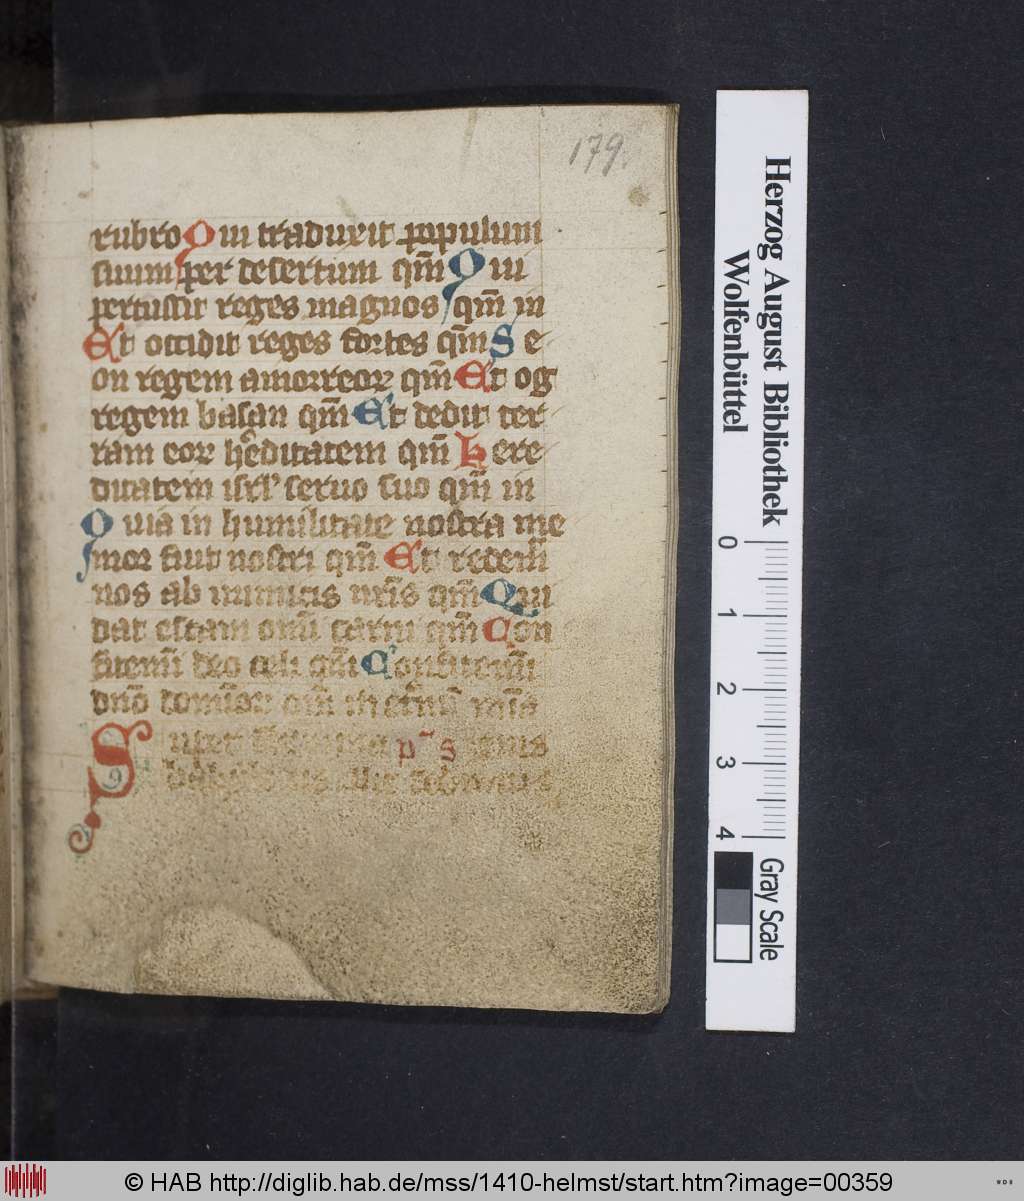 179.
rubro Qui traduxit populum
suum per desertum qm̄ Qui
percussit reges magnos qm̄ in
Et occidit reges fortes qm̄ Se
on regem amorreoꝝ qm̄ Et og
regem basan qm̄ Et dedit ter
ram eoꝝ hͤditatem qm̄ Here
ditatem isrl' seruo suo qm̄ in
Quia in humilitate nostra me
mor fuit nostri qm̄ Et redemi̅
nos ab inimicis nr̄is qm̄ Qui
dat escam omi̅ carni qm̄ Con
fitemi̅ deo celi qm̄ Confitemi̅
dn̄o domi̅oꝝ qm̄ in
Super flumina ps
babylonis
Herzog August Bibliothek
Wolfenbüttel
0 1 2 3 4
Gray Scale
© HAB http://diglib.hab.de/mss/1410-helmst/start.htm?image=00359